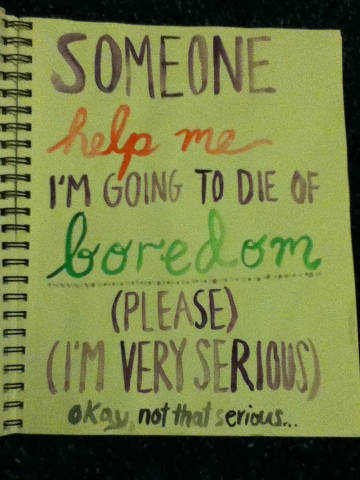 SOMEONE
help me
I'M GOING TO DIE OF
boredom
(PLEASE)
(I'M VERY SERIOUS)
okay, not that serious...